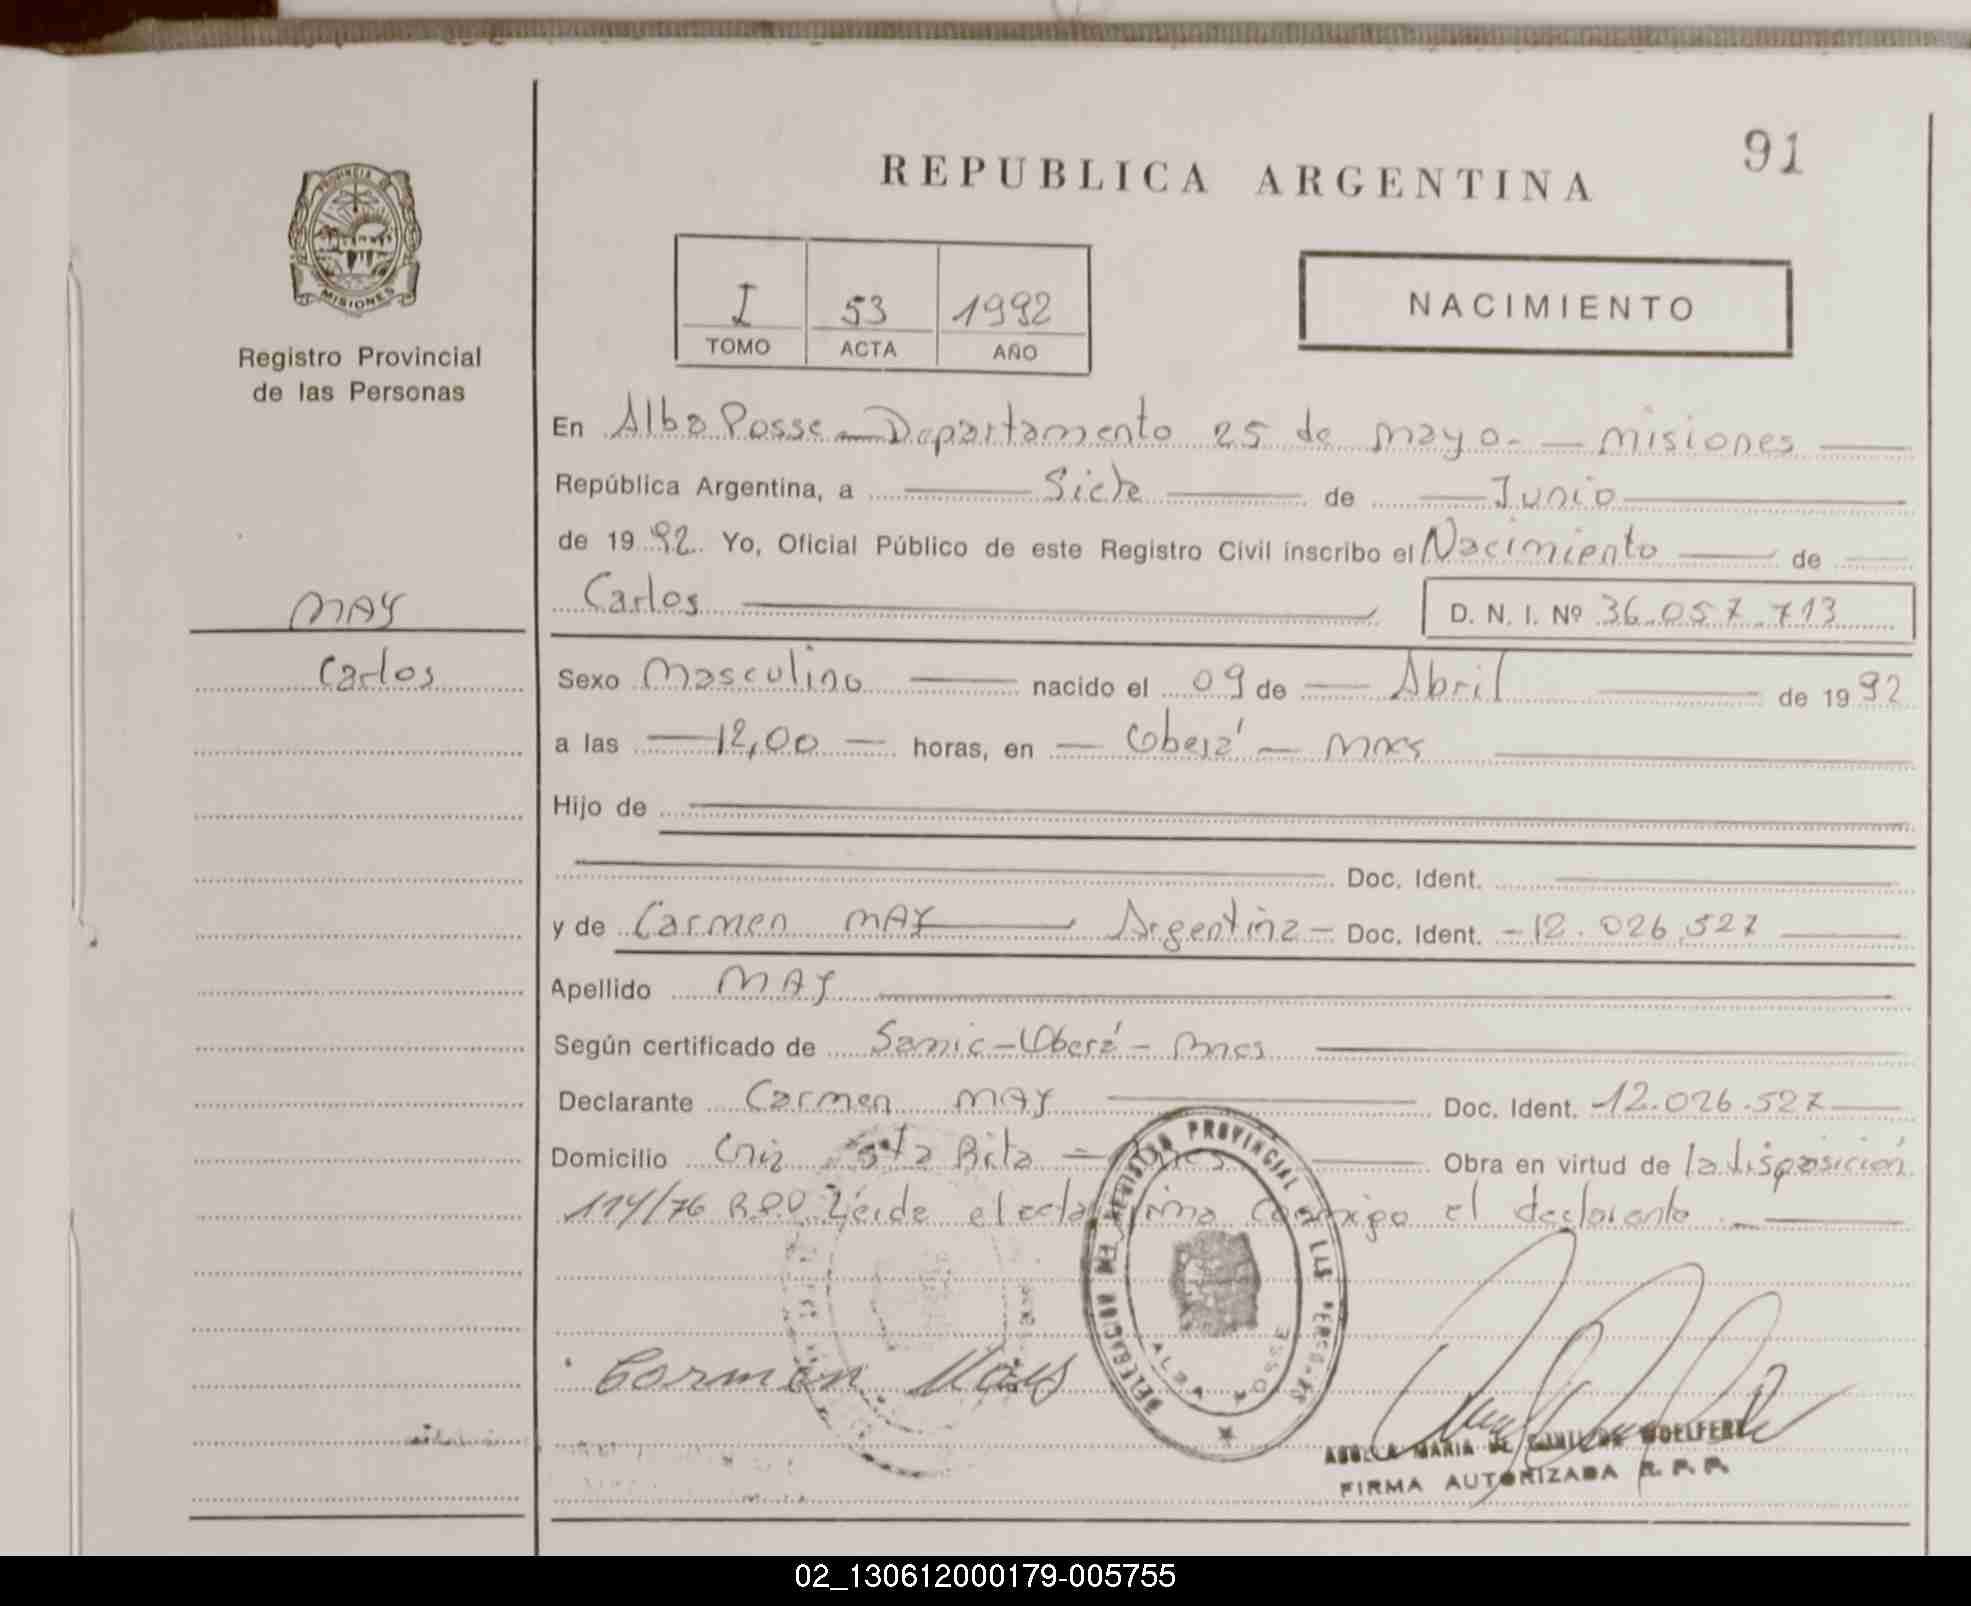 91
REPUBLICA ARGENTINA
PROVINCIA DE
MISIONES
Registro Provincial
de las Personas
I 53 1992
TOMO ACTA AÑO
NACIMIENTO
En Alba Posse - Departamento 25 de Mayo. - Misiones
República Argentina, a Siete de Junio
de 1992. Yo, Oficial Público de este Registro Civil inscribo el Nacimiento de
MAY
Carlos D. N. I. Nº 36.057.713
Carlos
Sexo Masculino nacido el 09 de Abril de 1992
a las 12,00 horas, en Oberá - Mnes
Hijo de
Doc. Ident.
y de Carmen MAY Argentina - Doc. Ident. - 12.026.527
Apellido MAY
Según certificado de Samic - Oberá - Mnes
Declarante Carmen MAY Doc. Ident. 12.026.527
Domicilio Sta Rita - Mnes Obra en virtud de la disposición
114/76 R.P.P. Leída el acta firma conmigo el declarante
DELEGACION DEL REGISTRO PROVINCIAL DE LAS PERSONAS
ALBA POSSE
Carmen May
MARIA DE WOELFERT
FIRMA AUTORIZADA R. P. P.
02_130612000179-005755